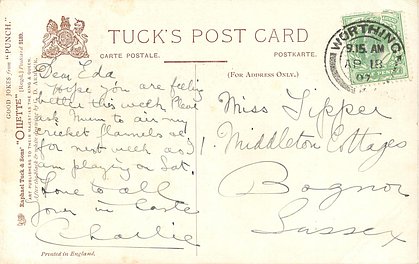 TUCK'S POST CARD
CARTE POSTALE.
POSTKARTE.
(FOR ADDRESS ONLY.)
GOOD JOKES from "PUNCH."
Raphael Tuck & Sons' "OILETTE" [Regd.] Postcard
Printed in England.
WORTHING
9.15 AM
AP 18
07
Dear Eda
Hope you are feeling
better this week Please
ask Mum to air my
cricket flannels
for next week as I
am playing on Sat.
Love to all
Yours in haste
Charlie
Miss Tipper
1. Middleton Cottages
Bognor
Sussex